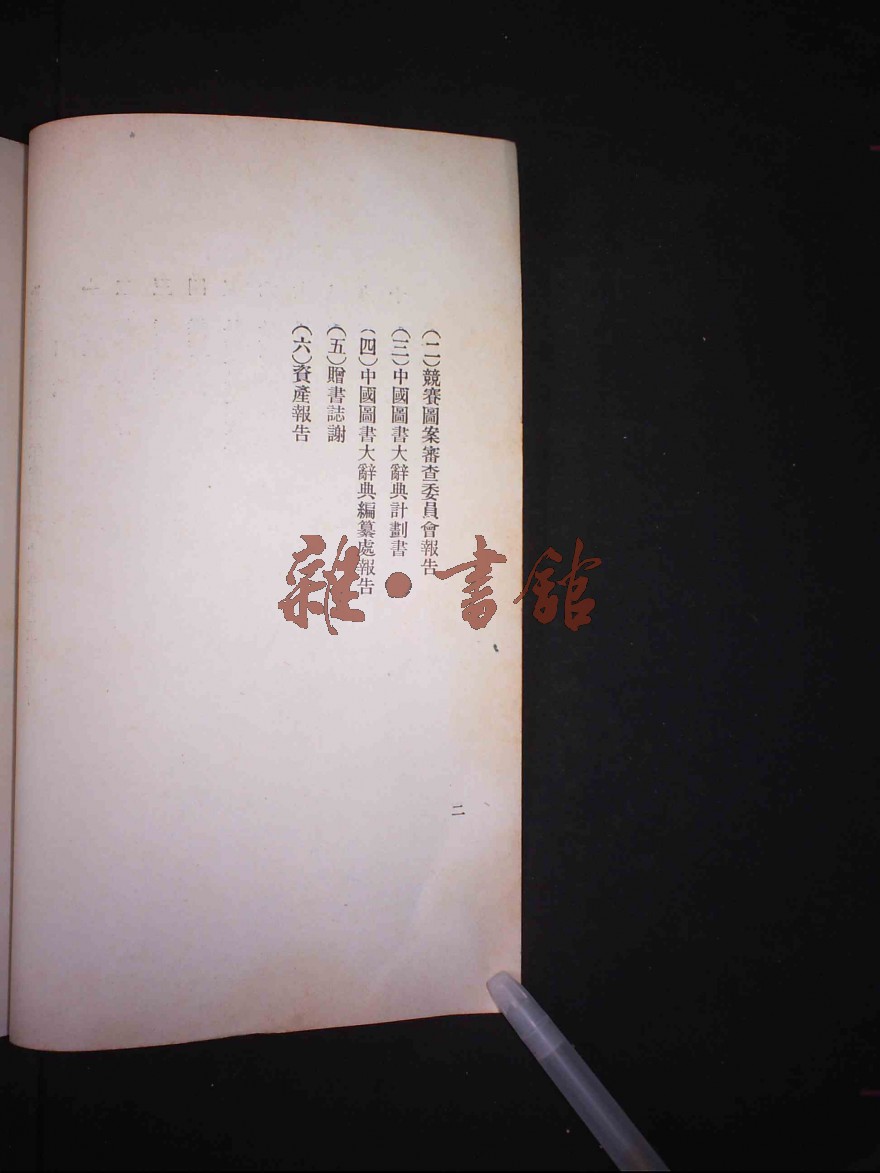 (二)競賽圖案審查委員會報告
(三)中國圖書大辭典計劃書
(四)中國圖書大辭典編纂處報告
(五)贈書誌謝
(六)資產報告
二
雜·書館